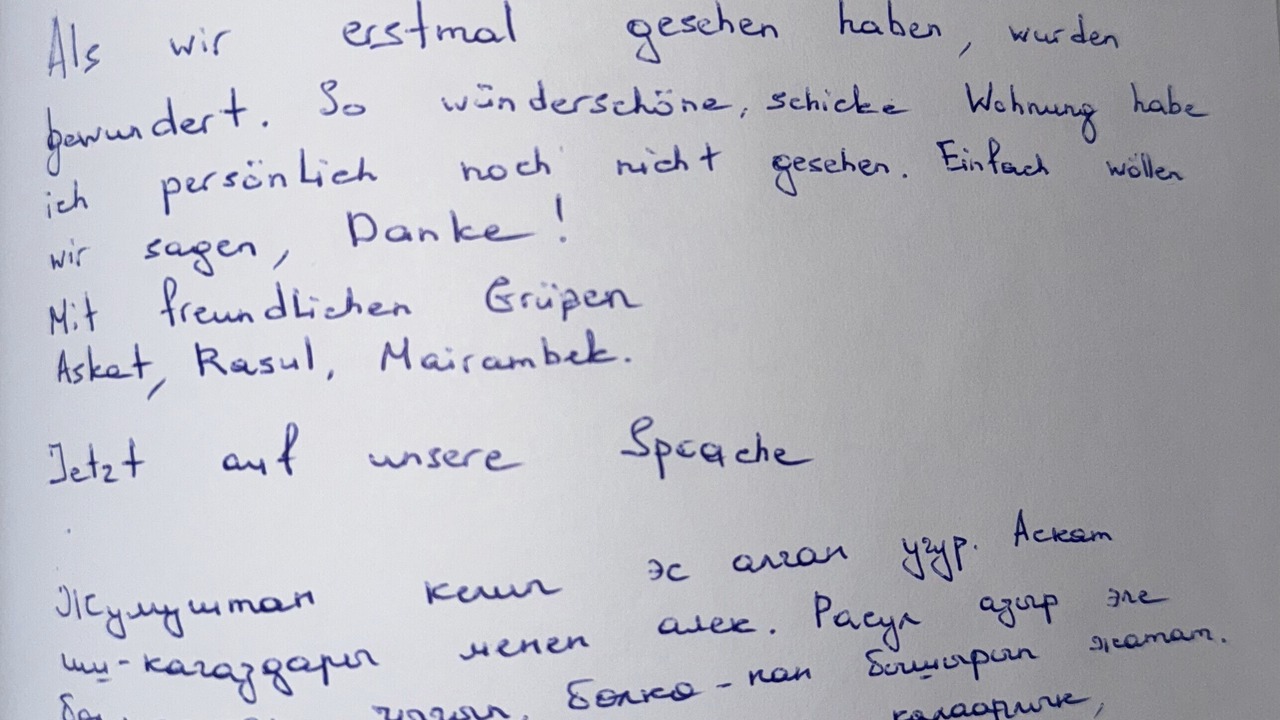 Als wir erstmal gesehen haben, wurden
bewundert. So wünderschöne, schicke Wohnung habe
ich persönlich noch nicht gesehen. Einfach wöllen
wir sagen, Danke!
Mit freundlichen Grüßen
Askat, Rasul, Mairambek.
Jetzt auf unsere Sprache
Жумуштан келип эс алган учур. Аскат
иш-кагаздары менен алек. Расул азыр эле
болко-нан бышырып жатат.